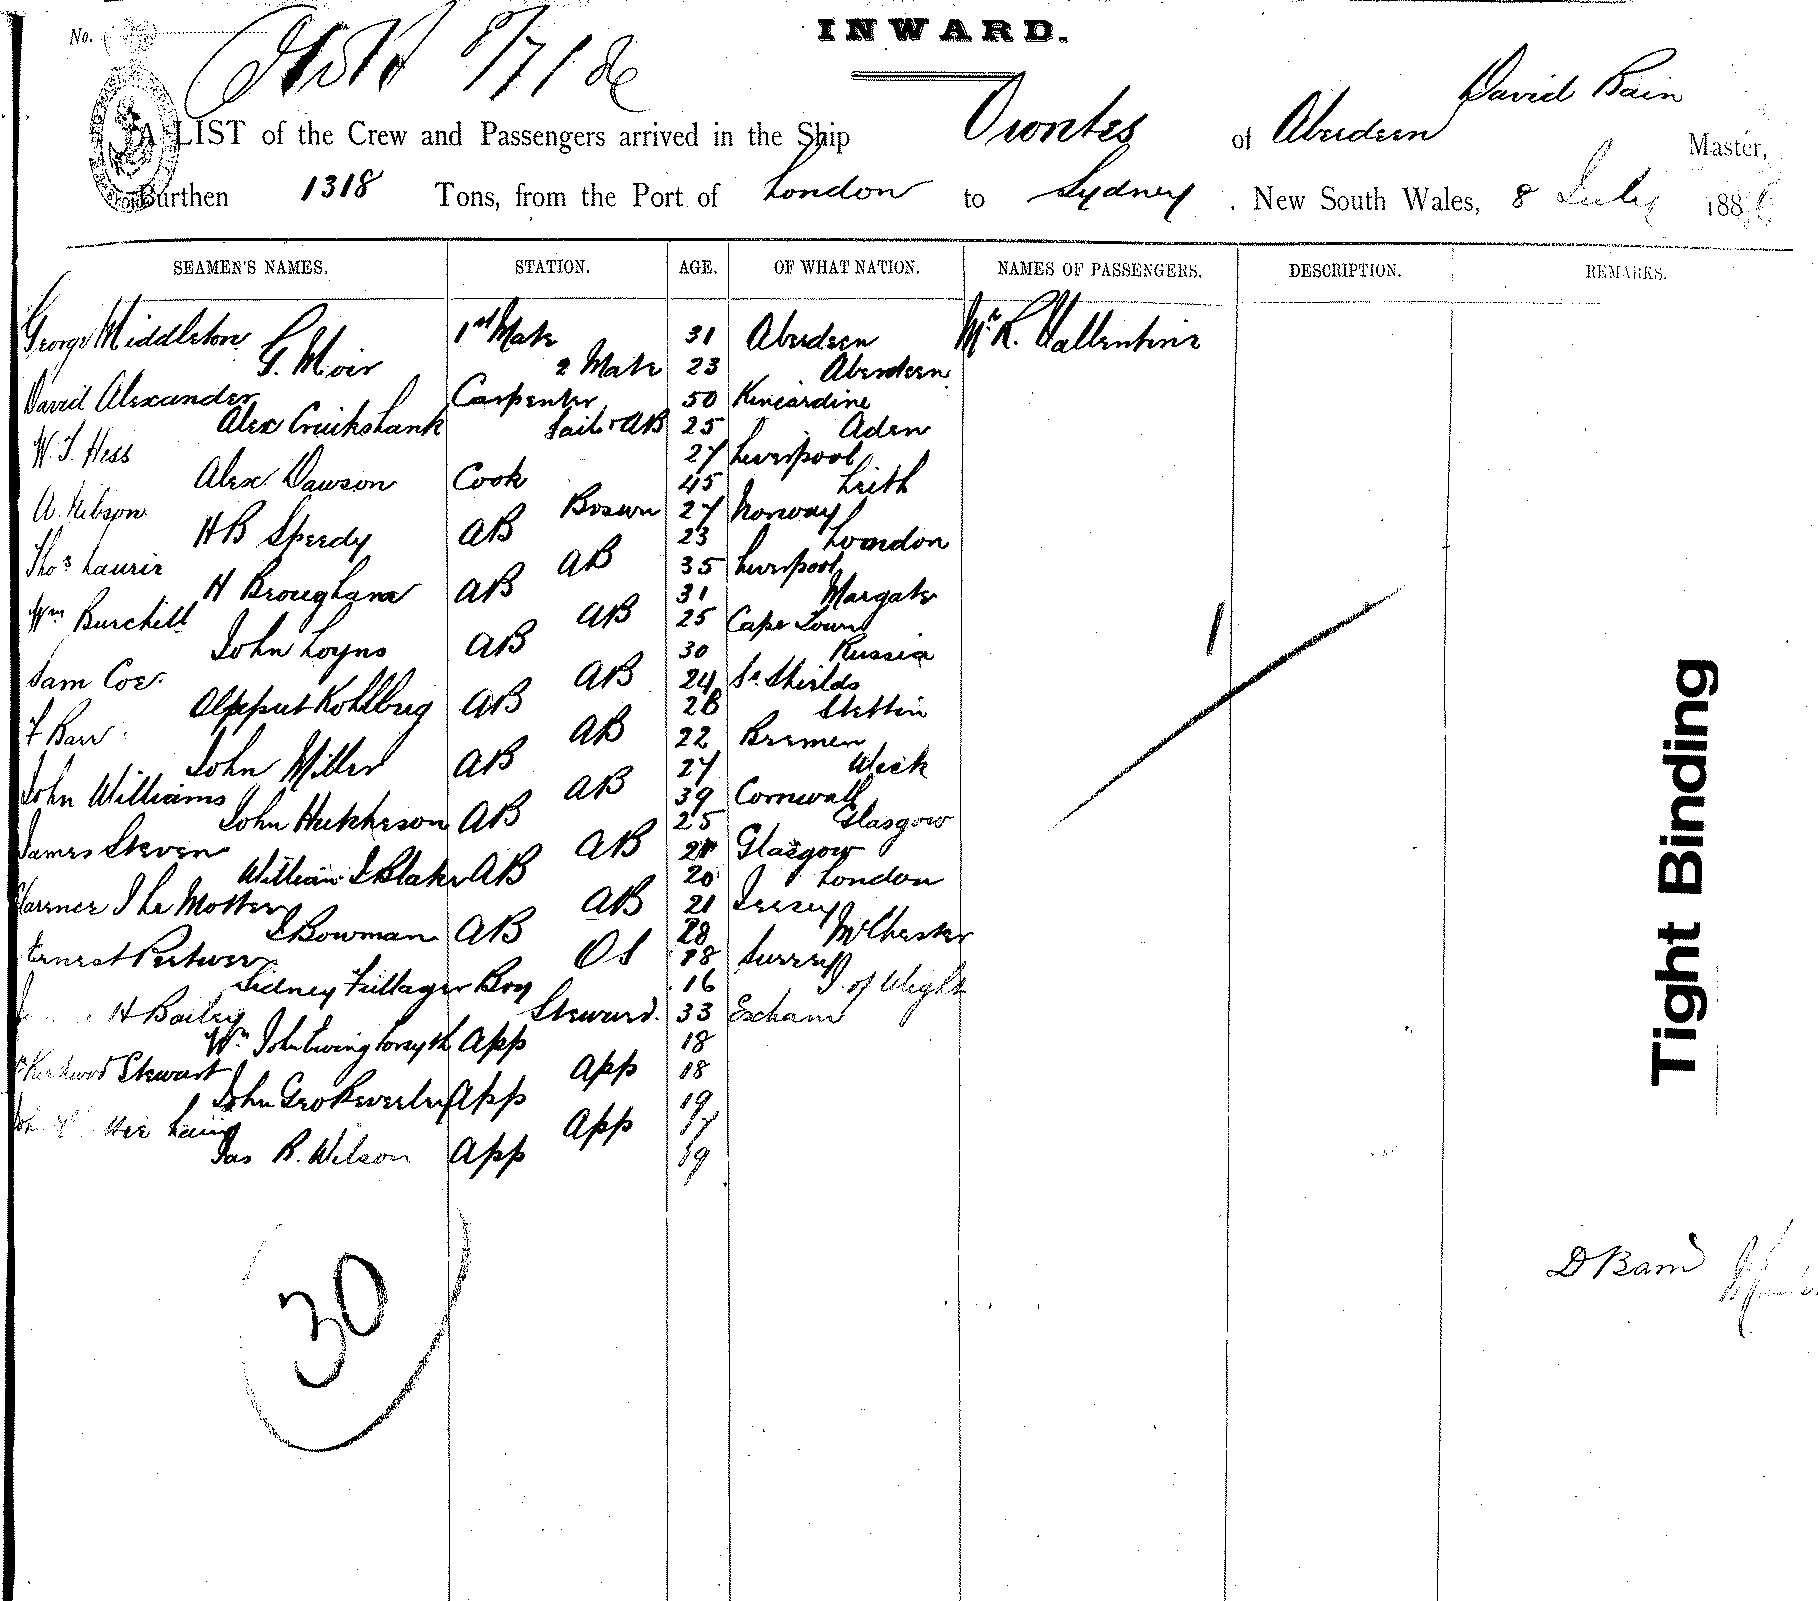 No.
INWARD.
David Bain
A LIST of the Crew and Passengers arrived in the Ship Orontes of Aberdeen Master,
Burthen 1318 Tons, from the Port of London to Sydney. New South Wales, 8 July 188
SEAMEN'S NAMES. STATION. AGE. OF WHAT NATION. NAMES OF PASSENGERS. DESCRIPTION. REMARKS.
George Middleton 1st Mate 31 Aberdeen Mr R. Vallentine
G. Moir 2 Mate 23 Aberdeen
David Alexander Carpenter 50 Kincardine
Alex Cruikshank Sailr AB 25 Aden
W. J. Hess 27 Liverpool
Alex Dawson Cook 45 Leith
A. Nilson Bosun 27 Norway
H B Speedy AB 23 London
Thos Laurie AB 35 Liverpool
H Brougham AB 31 Margate
Wm Burchell AB 25 Cape Town
John Loyns AB 30 Russia
Sam Coe. AB 24 So Shields
Kohlberg AB 28 Stettin
F Barr AB 22 Bremen
John Miller AB 27 Wick
John Williams AB 39 Cornwall
John Hutcheson AB 25 Glasgow
James Steven AB Glasgow
William J Blake AB 20 London
Clarence J Le Mottee AB 21 Jersey
J Bowman AB 28 McChester
Ernest Pertwee OS 18 Surrey
Sidney Fullager Boy 16 I. of Wight
H Bailey Steward. 33
Wm John Ewing Forsyth App 18
Kirkwood Stewart App 18
John Geo Beverley App 19
Laing App 17
Jas R. Wilson App 19
1
30
D Bain
Tight Binding